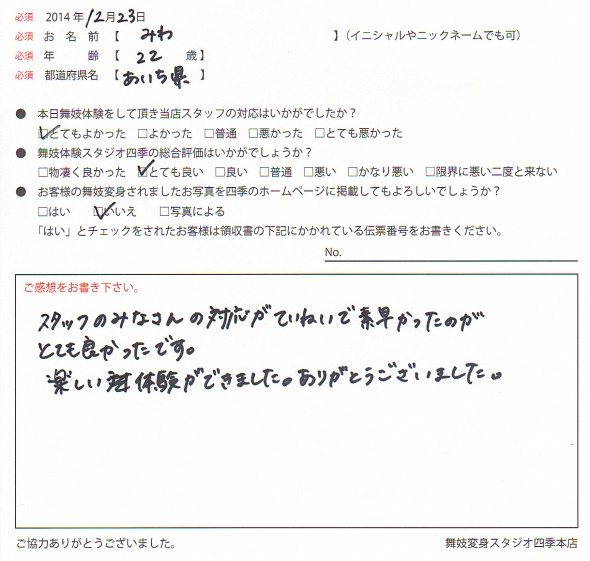 必須 2014年12月23日
必須 お名前【 みわ 】(イニシャルやニックネームでも可)
必須 年齢【 22 歳】
必須 都道府県名【あいち県】
● 本日舞妓体験をして頂き当店スタッフの対応はいかがでしたか?
☑とてもよかった □よかった □普通 □悪かった □とても悪かった
● 舞妓体験スタジオ四季の総合評価はいかがでしょうか?
□物凄く良かった ☑とても良い □良い □普通 □悪い □かなり悪い □限界に悪い二度と来ない
● お客様の舞妓変身されましたお写真を四季のホームページに掲載してもよろしいでしょうか?
□はい ☑いいえ □写真による
「はい」とチェックをされたお客様は領収書の下記にかかれている伝票番号をお書きください。
No.
ご感想をお書き下さい。
スタッフのみなさんの対応がていねいで素早かったのが
とても良かったです。
楽しい体験ができました。ありがとうございました。
ご協力ありがとうございました。
舞妓変身スタジオ四季本店